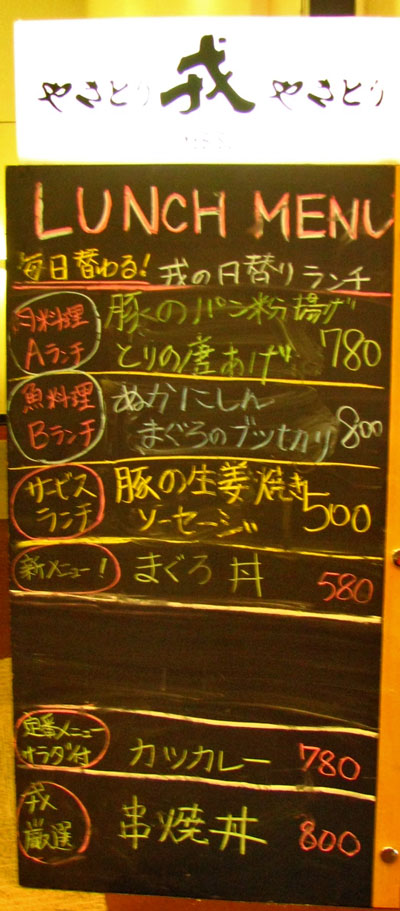 やさとり 戎 やさとり
LUNCH MENU
毎日替わる! 戎の日替りランチ
肉料理 Aランチ
豚のパン粉揚げ
とりの唐あげ 780
魚料理 Bランチ
ぬかにしん
まぐろのブツ切り 800
サービス ランチ
豚の生姜焼き
ソーセージ 500
新メニュー! まぐろ丼 580
定番メニュー
サラダ付 カツカレー 780
戎
厳選 串焼丼 800